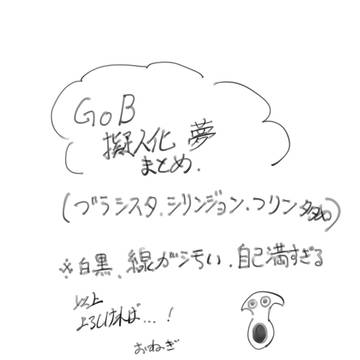 GoB
擬人化 夢
まとめ.
(ブラシスタ.シリンジョン.フリンタタロ)
※白黒、線が汚い.自己満すぎる
以上
よろしければ...!
おねぎ